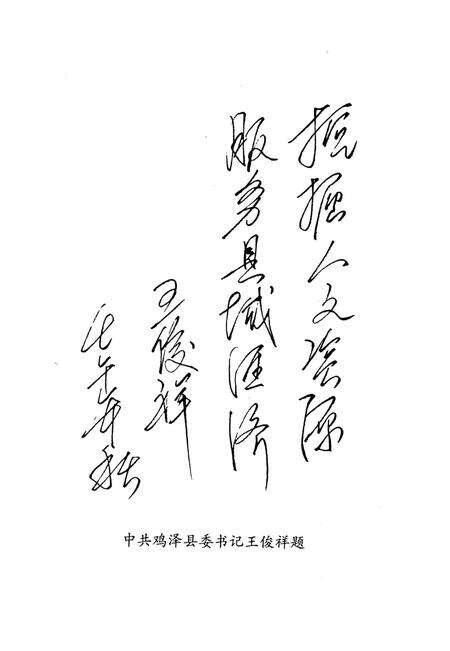 挖掘人文资源
服务县域经济
王俊祥
年秋
中共鸡泽县委书记王俊祥题